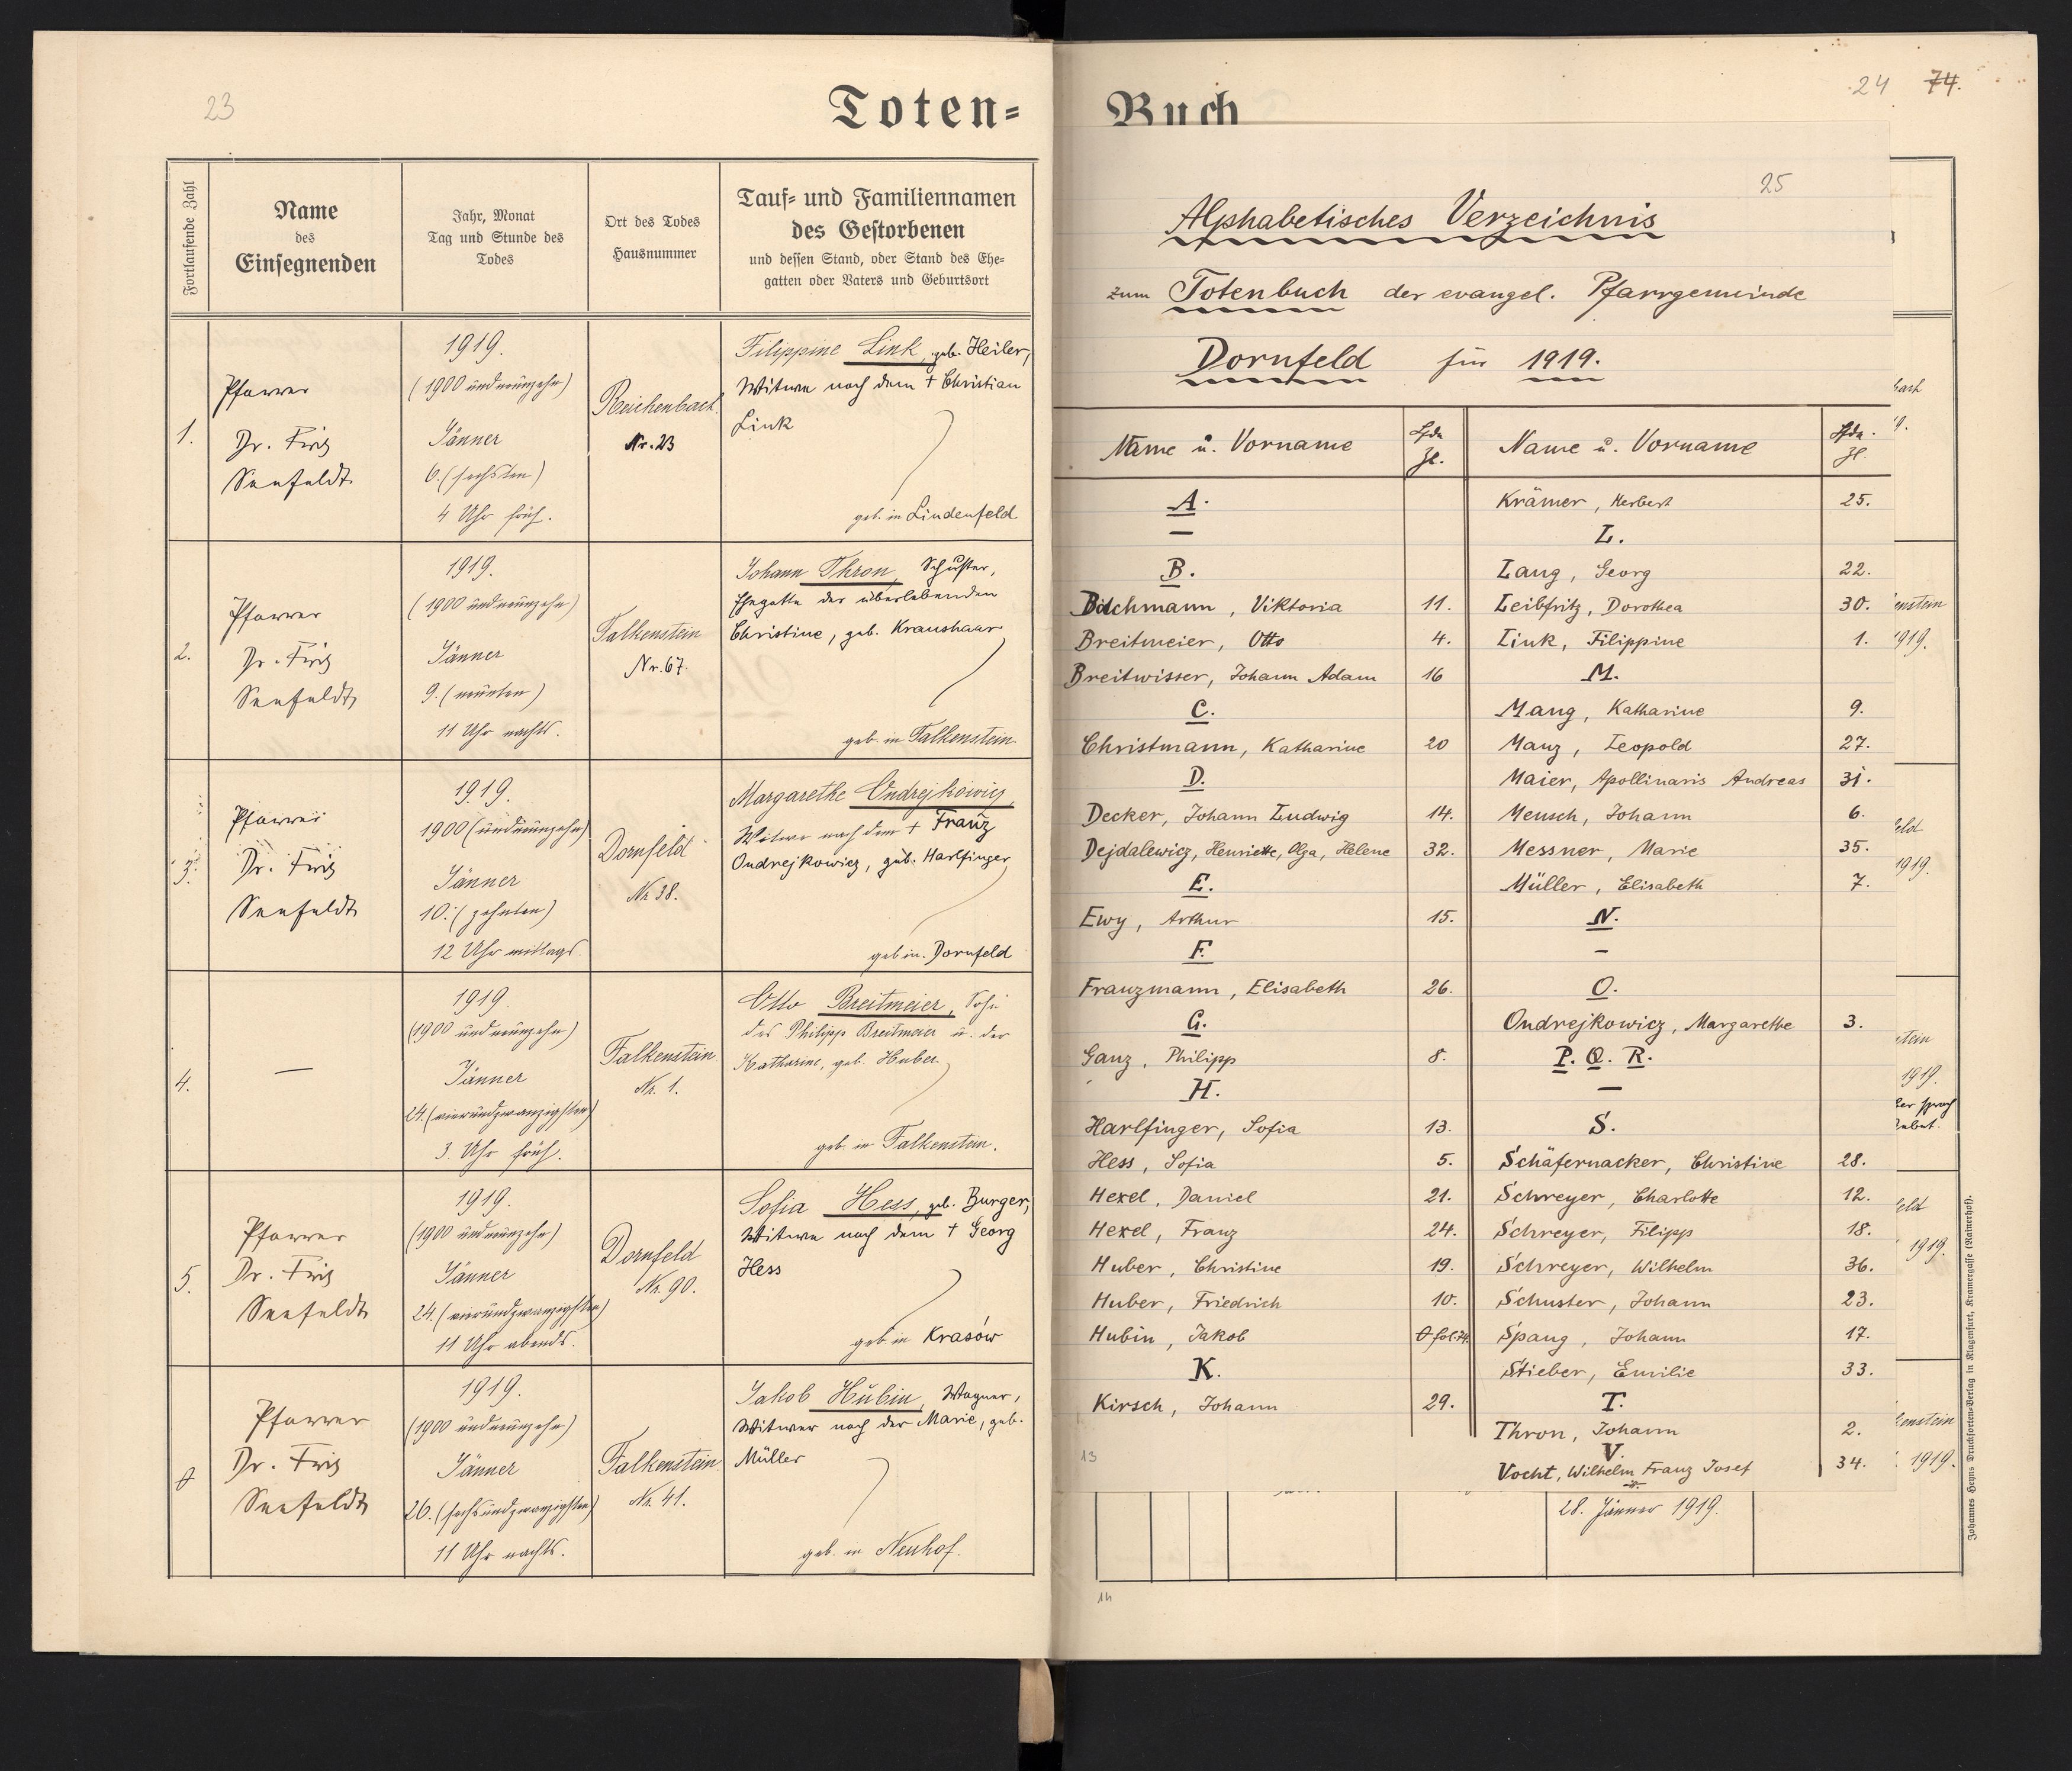 23
Toten=
Fortlaufende Zahl
Name
des
Einsegnenden
Jahr, Monat
Tag und Stunde des
Todes
Ort des Todes
Hausnummer
Tauf- und Familiennamen
des Gestorbenen
und dessen Stand, oder Stand des Ehe-
gatten oder Vaters und Geburtsort
1.
Pfarrer
Dr. Fritz
Seefeldt
1919.
(1900 und neunzehn)
Jänner
6. (sechsten)
4 Uhr früh.
Reichenbach
Nr. 23
Filippine Link, geb. Heiler,
Witwe nach dem † Christian
Link
geb. in Lindenfeld
2.
Pfarrer
Dr. Fritz
Seefeldt
1919.
(1900 und neunzehn)
Jänner
9. (neunten)
11 Uhr nachts.
Falkenstein
Nr. 67.
Johann Thron, Schuster,
Ehegatte der überlebenden
Christine, geb. Kraushaar
geb. in Falkenstein
3.
Pfarrer
Dr. Fritz
Seefeldt
1919.
1900 (undneunzehn)
Jänner
10. (zehnten)
12 Uhr mittags.
Dornfeld
Nr 38.
Margarethe Ondrejkowicz,
Witwe nach dem † Franz
Ondrejkowicz, geb. Harlfinger
geb in. Dornfeld
4.
—
1919.
(1900 und neunzehn)
Jänner
24. (vierundzwanzigsten)
3. Uhr früh.
Falkenstein
Nr. 1.
Otto Breitmeier, Sohn
des Philipp Breitmeier u. der
Katharine, geb. Huber
geb. in Falkenstein.
5.
Pfarrer
Dr. Fritz
Seefeldt
1919.
(1900 und neunzehn)
Jänner
24. (vierundzwanzigsten)
11 Uhr abends.
Dornfeld
Nr. 90.
Sofia Hess, geb. Burger,
Witwe nach dem † Georg
Hess
geb in Krasów
0
Pfarrer
Dr. Fritz
Seefeldt
1919.
(1900 und neunzehn)
Jänner
26. (sechsundzwanzigsten)
11 Uhr nachts.
Falkenstein
Nr. 41.
Jakob Hubin, Wagner,
Witwer nach der Marie, geb.
Müller
geb. in Neuhof.
24 74.
Buch
25
Alphabetisches Verzeichnis
zum Totenbuch der evangel. Pfarrgemeinde
Dornfeld für 1919.
Name u. Vorname
Lfde
Zl.
Name u. Vorname
Lfde.
Zl.
A.
—
B.
Bachmann, Viktoria 11.
Breitmeier, Otto 4.
Breitwisser, Johann Adam 16
C.
Christmann, Katharine 20
D.
Decker, Johann Ludwig 14.
Dejdalewicz, Henriette, Olga, Helene 32.
E.
Ewy, Arthur 15.
F.
Franzmann, Elisabeth 26.
G.
Ganz, Philipp 8.
H.
Harlfinger, Sofia 13.
Hess, Sofia 5.
Hexel, Daniel 21.
Hexel, Franz 24.
Huber, Christine 19.
Huber, Friedrich 10.
Hubin, Jakob 0 fol. 74.
K.
Kirsch, Johann 29.
13
Krämer, Herbert 25.
L.
Lang, Georg 22.
Leibfritz, Dorothea 30.
Link, Filippine 1.
M.
Mang, Katharine 9.
Manz, Leopold 27.
Maier, Apollinaris Andreas 31.
Mensch, Johann 6.
Messner, Marie 35.
Müller, Elisabeth 7.
N.
—
O.
Ondrejkowicz, Margarethe 3.
P. Q. R.
—
S.
Schäfernacker, Christine 28.
Schreyer, Charlotte 12.
Schreyer, Filipp 18.
Schreyer, Wilhelm 36.
Schuster, Johann 23.
Spang, Johann 17.
Stieber, Emilie 33.
T.
Thron, Johann 2.
V.
Vocht, Wilhelm Franz Josef 34.
bach
9.
enstein
1919.
eld
1919.
stein
1919.
eld
1919.
enstein
1919.
28. Jänner 1919.
14
Johannes Heyns Drucksorten-Verlag in Klagenfurt, Kramergasse (Rainerhof).